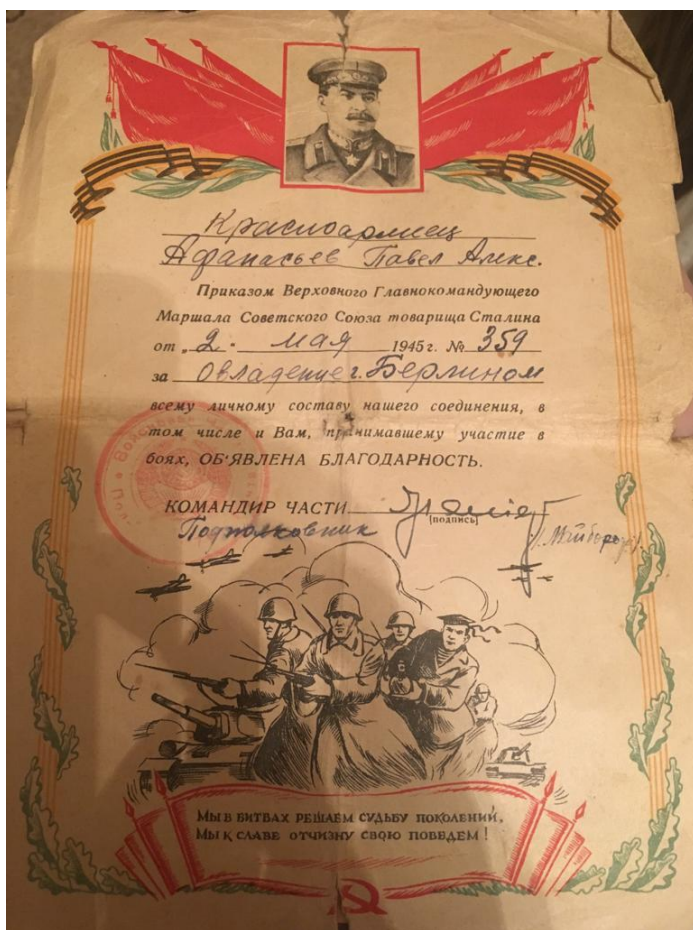 Красноармеец
Афанасьев Павел Алекс.
Приказом Верховного Главнокомандующего
Маршала Советского Союза товарища Сталина
от „2" мая 1945 г. № 359
за Овладение г. Берлином
всему личному составу нашего соединения, в
том числе и Вам, принимавшему участие в
боях, ОБ'ЯВЛЕНА БЛАГОДАРНОСТЬ.
КОМАНДИР ЧАСТИ
(подпись)
Подполковник
Мы в битвах решаем судьбу поколений,
Мы к славе отчизну свою поведем!